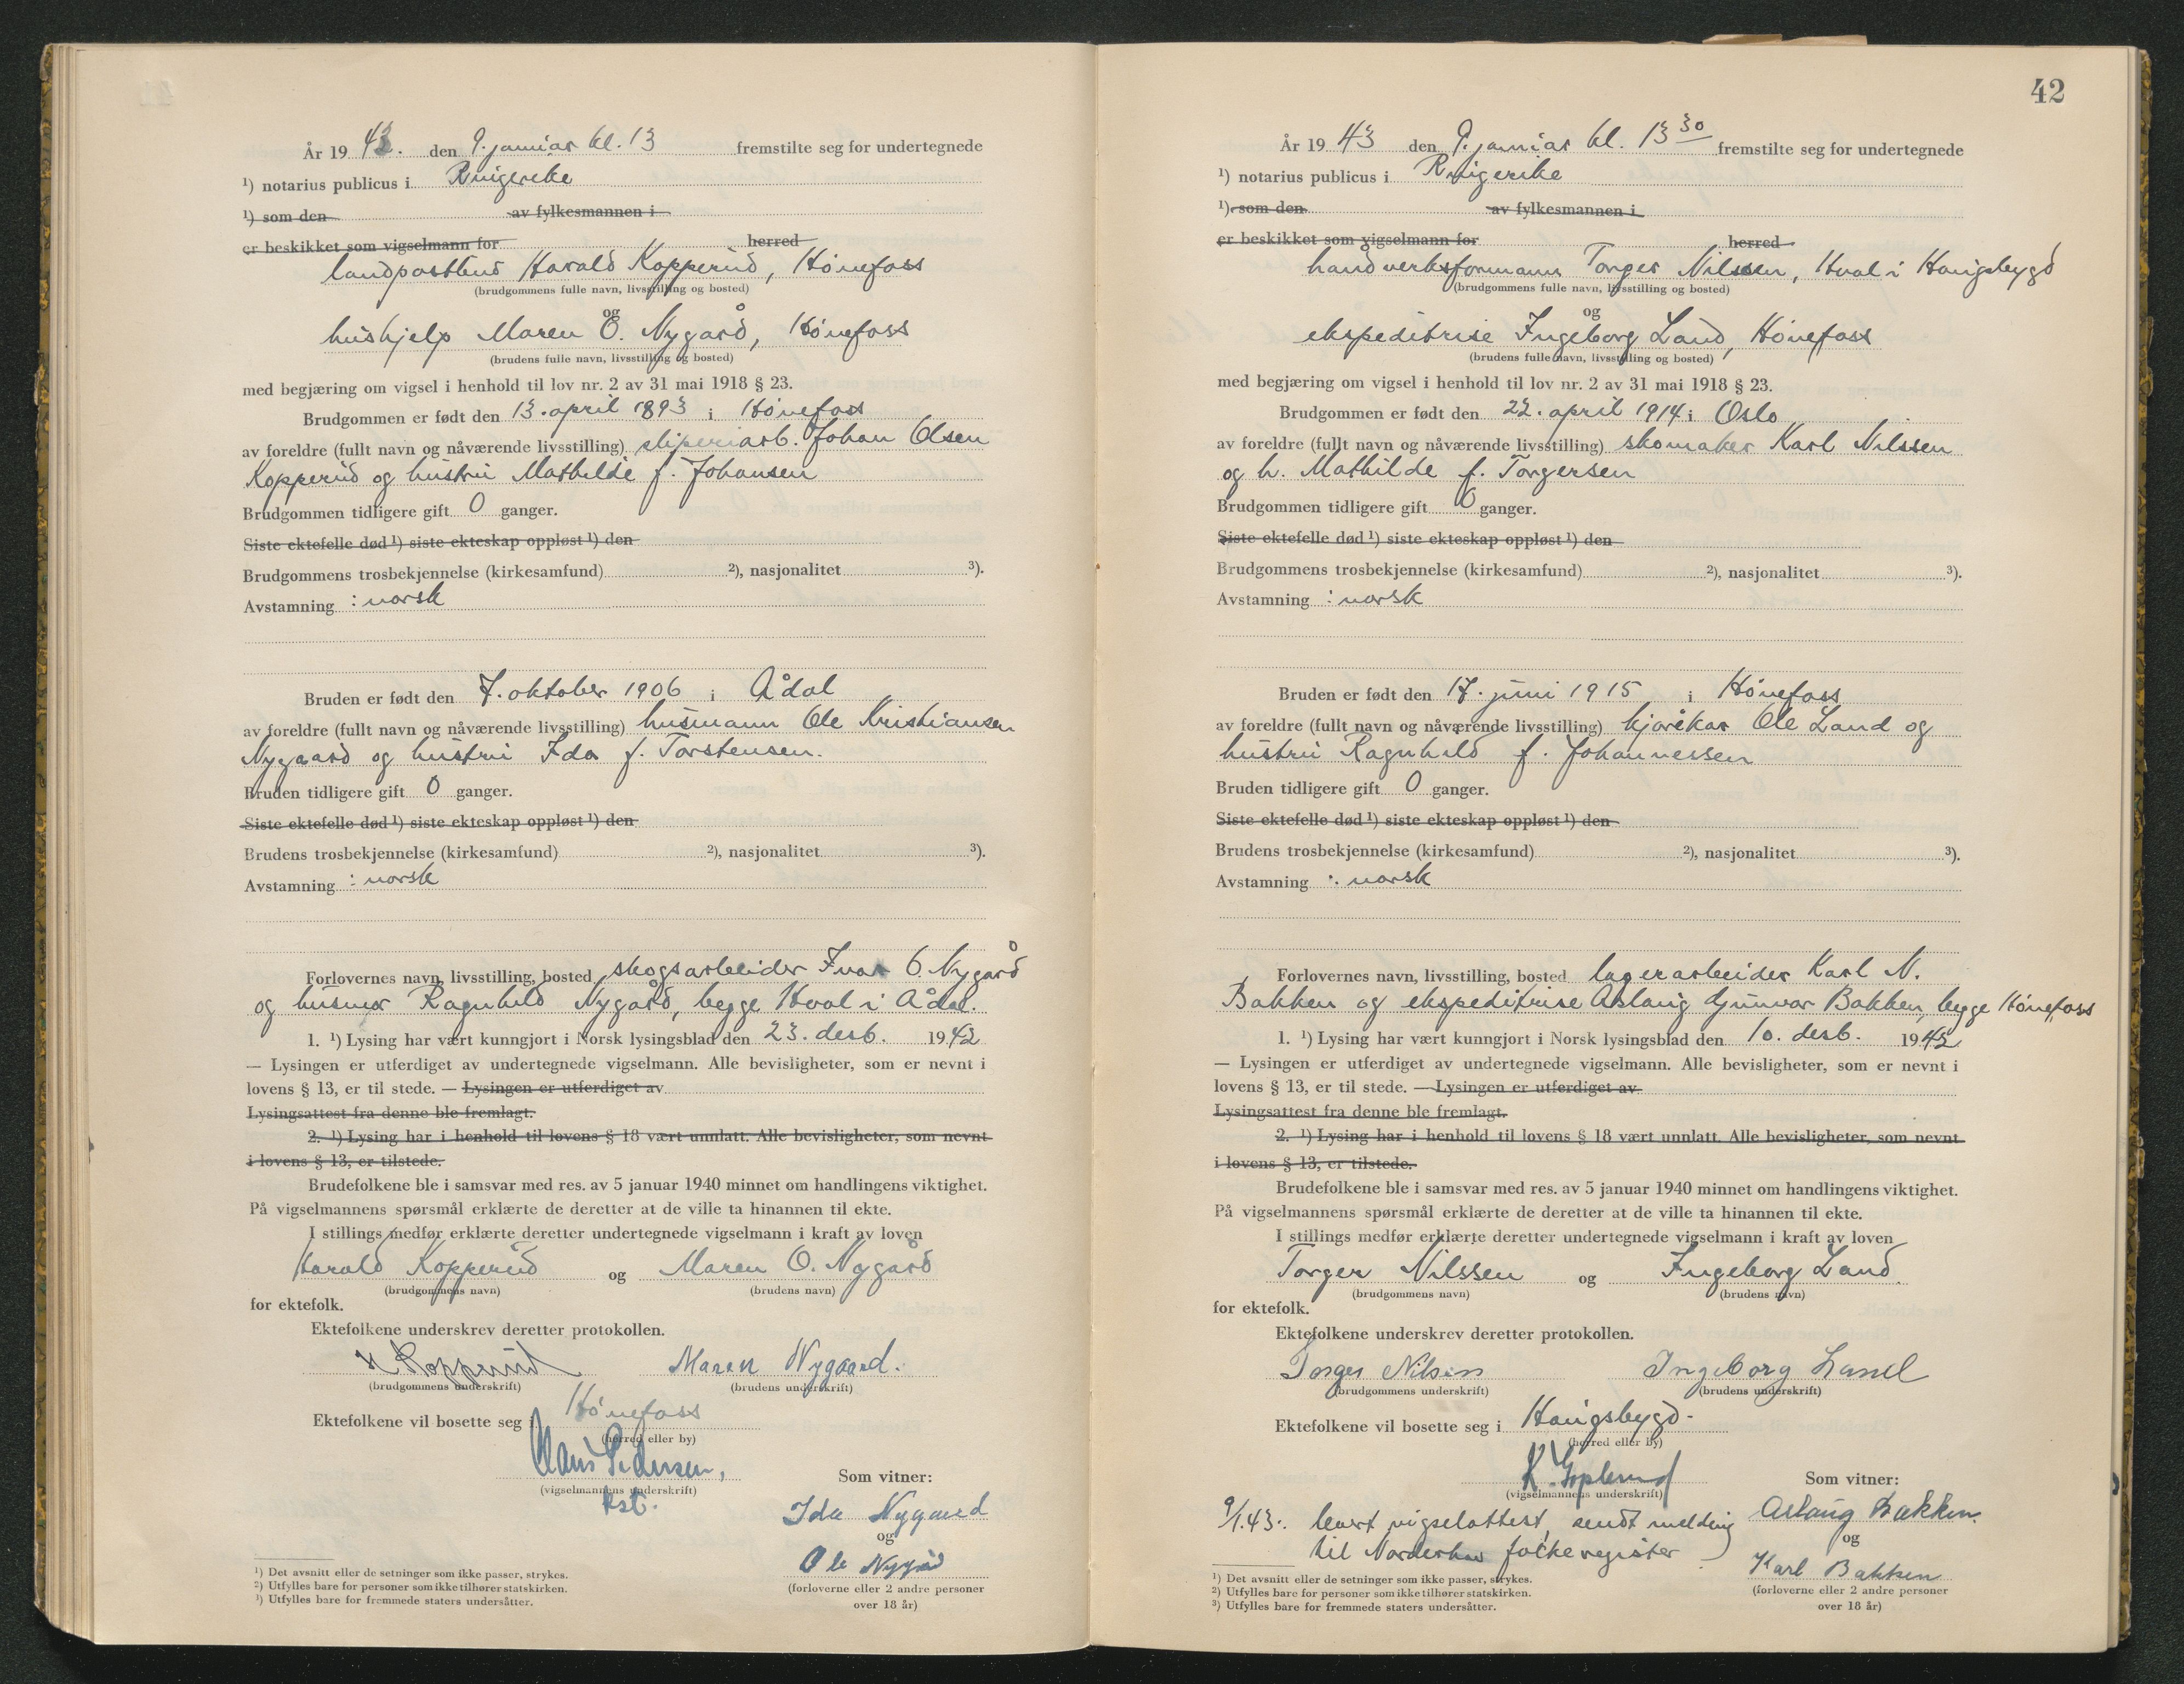 År 19 43. den 9. januar kl. 13 fremstilte seg for undertegnede
¹) notarius publicus i Ringerike
¹) som den av fylkesmannen i
er beskikket som vigselmann for herred
landpostbud Harald Kopperud, Hønefoss
(brudgommens fulle navn, livsstilling og bosted)
og
hushjelp Maren O. Nygård, Hønefoss
(brudens fulle navn, livsstilling og bosted)
med begjæring om vigsel i henhold til lov nr. 2 av 31 mai 1918 § 23.
Brudgommen er født den 13. april 1893 i Hønefoss
av foreldre (fullt navn og nåværende livsstilling) sliperiarb. Johan Olsen
Kopperud og hustru Mathilde f. Johansen
Brudgommen tidligere gift 0 ganger.
Siste ektefelle død ¹) siste ekteskap oppløst ¹) den
Brudgommens trosbekjennelse (kirkesamfund) ²), nasjonalitet ³).
Avstamning : norsk
Bruden er født den 7. oktober 1906 i Ådal
av foreldre (fullt navn og nåværende livsstilling) husmann Ole Kristiansen
Nygaard og hustru Ida f. Torstensen.
Bruden tidligere gift 0 ganger.
Siste ektefelle død ¹) siste ekteskap oppløst ¹) den
Brudens trosbekjennelse (kirkesamfund) ²), nasjonalitet ³).
Avstamning : norsk
Forlovernes navn, livsstilling, bosted skogsarbeider Ivar O. Nygård
og husmor Ragnhild Nygård, begge Hval i Ådal.
1. ¹) Lysing har vært kunngjort i Norsk lysingsblad den 23. desb. 1942
— Lysingen er utferdiget av undertegnede vigselmann. Alle bevisligheter, som er nevnt i
lovens § 13, er til stede. — Lysingen er utferdiget av
Lysingsattest fra denne ble fremlagt.
2. ¹) Lysing har i henhold til lovens § 18 vært unnlatt. Alle bevisligheter, som nevnt
i lovens § 13, er tilstede.
Brudefolkene ble i samsvar med res. av 5 januar 1940 minnet om handlingens viktighet.
På vigselmannens spørsmål erklærte de deretter at de ville ta hinannen til ekte.
I stillings medfør erklærte deretter undertegnede vigselmann i kraft av loven
Harald Kopperud og Maren O. Nygård
(brudgommens navn) (brudens navn)
for ektefolk.
Ektefolkene underskrev deretter protokollen.
H Kopperud Maren Nygaard.
(brudgommens underskrift) (brudens underskrift)
Ektefolkene vil bosette seg i Hønefoss
(herred eller by)
Claus Pedersen,
(vigselmannens underskrift)
kst.
Som vitner:
Ida Nygaard
og
Ole Nygård
(forloverne eller 2 andre personer
over 18 år)
¹) Det avsnitt eller de setninger som ikke passer, strykes.
²) Utfylles bare for personer som ikke tilhører statskirken.
³) Utfylles bare for fremmede staters undersåtter.
42
År 19 43 den 9. januar kl. 13 30 fremstilte seg for undertegnede
¹) notarius publicus i Ringerike
¹) som den av fylkesmannen i
er beskikket som vigselmann for herred
håndverksformann Torger Nilssen, Hval i Haugsbygd
(brudgommens fulle navn, livsstilling og bosted)
og
ekspeditrise Ingeborg Land, Hønefoss
(brudens fulle navn, livsstilling og bosted)
med begjæring om vigsel i henhold til lov nr. 2 av 31 mai 1918 § 23.
Brudgommen er født den 22. april 1914 i Oslo
av foreldre (fullt navn og nåværende livsstilling) skomaker Karl Nilssen
og h. Mathilde f. Torgersen
Brudgommen tidligere gift 0 ganger.
Siste ektefelle død ¹) siste ekteskap oppløst ¹) den
Brudgommens trosbekjennelse (kirkesamfund) ²), nasjonalitet ³).
Avstamning : norsk
Bruden er født den 17. juni 1915 i Hønefoss
av foreldre (fullt navn og nåværende livsstilling) kjørekar Ole Land og
hustru Ragnhild f. Johannessen
Bruden tidligere gift 0 ganger.
Siste ektefelle død ¹) siste ekteskap oppløst ¹) den
Brudens trosbekjennelse (kirkesamfund) ²), nasjonalitet ³).
Avstamning : norsk
Forlovernes navn, livsstilling, bosted lagerarbeider Karl N.
Bakken og ekspeditrise Aslaug Gunvor Bakken, begge Hønefoss
1. ¹) Lysing har vært kunngjort i Norsk lysingsblad den 10. desb. 1942
— Lysingen er utferdiget av undertegnede vigselmann. Alle bevisligheter, som er nevnt i
lovens § 13, er til stede. — Lysingen er utferdiget av
Lysingsattest fra denne ble fremlagt.
2. ¹) Lysing har i henhold til lovens § 18 vært unnlatt. Alle bevisligheter, som nevnt
i lovens § 13, er tilstede.
Brudefolkene ble i samsvar med res. av 5 januar 1940 minnet om handlingens viktighet.
På vigselmannens spørsmål erklærte de deretter at de ville ta hinannen til ekte.
I stillings medfør erklærte deretter undertegnede vigselmann i kraft av loven
Torger Nilssen og Ingeborg Land.
(brudgommens navn) (brudens navn)
for ektefolk.
Ektefolkene underskrev deretter protokollen.
Torger Nilsen Ingeborg Land
(brudgommens underskrift) (brudens underskrift)
Ektefolkene vil bosette seg i Haugsbygd.
(herred eller by)
K.
(vigselmannens underskrift)
9/1.43. levert vigselattest, sendt melding
til Norderhov folkeregister
Som vitner:
Aslaug Bakken.
og
Karl Bakken
(forloverne eller 2 andre personer
over 18 år)
¹) Det avsnitt eller de setninger som ikke passer, strykes.
²) Utfylles bare for personer som ikke tilhører statskirken.
³) Utfylles bare for fremmede staters undersåtter.